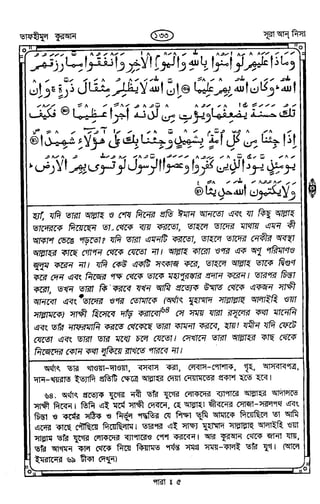 তাফহীমুল কুরআন ১৩৩ সূরা আন্ নিসা
وَمَاذَا عَلَيْهِمْ لَوْ اٰمَنُوْا بِاللّٰهِ وَالْيَوْمِ الْاٰخِرِ وَاَنْفَقُوْا مِمَّا رَزَقَهُمُ
اللّٰهُ ؕ وَكَانَ اللّٰهُ بِهِمْ عَلِيْمًا ۝ اِنَّ اللّٰهَ لَا يَظْلِمُ مِثْقَالَ ذَرَّةٍ ۚ وَاِنْ
تَكُ حَسَنَةً يُّضٰعِفْهَا وَيُؤْتِ مِنْ لَّدُنْهُ اَجْرًا عَظِيْمًا ۝ فَكَيْفَ
اِذَا جِئْنَا مِنْ كُلِّ اُمَّةٍۭ بِشَهِيْدٍ وَّجِئْنَا بِكَ عَلٰى هٰٓؤُلَآءِ شَهِيْدًا ۝
يَوْمَئِذٍ يَّوَدُّ الَّذِيْنَ كَفَرُوْا وَعَصَوُا الرَّسُوْلَ لَوْ تُسَوّٰى بِهِمُ الْاَرْضُ ؕ
وَلَا يَكْتُمُوْنَ اللّٰهَ حَدِيْثًا ۝
হ্যাঁ, যদি তারা আল্লাহ ও শেষ দিনের প্রতি ঈমান আনতো এবং যা কিছু আল্লাহ
তাদেরকে দিয়েছেন তা থেকে ব্যয় করতো, তাহলে তাদের মাথায় এমন কী
আকাশ ভেঙে পড়তো? যদি তারা এমনটি করতো, তাহলে তাদের নেকীর অবস্থা
আল্লাহর কাছে গোপন থেকে যেতো না। আল্লাহ কারো ওপর এক অণু পরিমাণও
জুলুম করেন না। যদি কেউ একটি সৎকাজ করে, তাহলে আল্লাহ তাকে দ্বিগুণ
করে দেন এবং নিজের পক্ষ থেকে তাকে মহাপুরস্কার প্রদান করেন। তারপর চিন্তা
করো, তখন তারা কি করবে যখন আমি প্রত্যেক উম্মাত থেকে একজন সাক্ষী
আনবো এবং তাদের ওপর তোমাকে (অর্থাৎ মুহাম্মাদ সাল্লাল্লাহু আলাইহি ওয়া
সাল্লামকে) সাক্ষী হিসেবে দাঁড় করাবো৬৪ সে সময় যারা রসূলের কথা মানেনি
এবং তাঁর নাফরমানি করতে থেকেছে তারা কামনা করবে, হায়! যমীন যদি ফেটে
যেতো এবং তারা তার মধ্যে চলে যেতো। সেখানে তারা আল্লাহর কাছ থেকে
নিজেদের কোন কথা লুকিয়ে রাখতে পারবে না।
অর্থাৎ তার খাওয়া-দাওয়া, বসবাস করা, লেবাস-পোশাক, গৃহ, আসবাবপত্র,
দান-খয়রাত ইত্যাদি প্রতিটি ক্ষেত্রে আল্লাহর দেয়া নেয়ামতের প্রকাশ হতে হবে।
৬৪. অর্থাৎ প্রত্যেক যুগের নবী তাঁর যুগের লোকদের ব্যাপারে আল্লাহর আদালতে
সাক্ষী দিবেন। তিনি এই মর্মে সাক্ষী দেবেন, হে আল্লাহ! জীবনের সোজা-সরল পথ এবং
চিন্তা ও কর্মের সঠিক ও নির্ভুল পদ্ধতির যে শিক্ষা তুমি আমাকে দিয়েছিলে তা আমি
এদের কাছে পৌঁছিয়ে দিয়েছিলাম। তারপর এই সাক্ষ্য মুহাম্মাদ সাল্লাল্লাহু আলাইহি ওয়া
সাল্লাম তাঁর যুগের লোকদের ব্যাপারেও পেশ করবেন। আর কুরআন থেকে জানা যায়,
তাঁর আগমন কাল থেকে নিয়ে কিয়ামত পর্যন্ত সমগ্র সময়-কালই তাঁর যুগ। (আলে
ইমরানের ৬৯ টীকা দেখুন)
পারা ঃ ৫